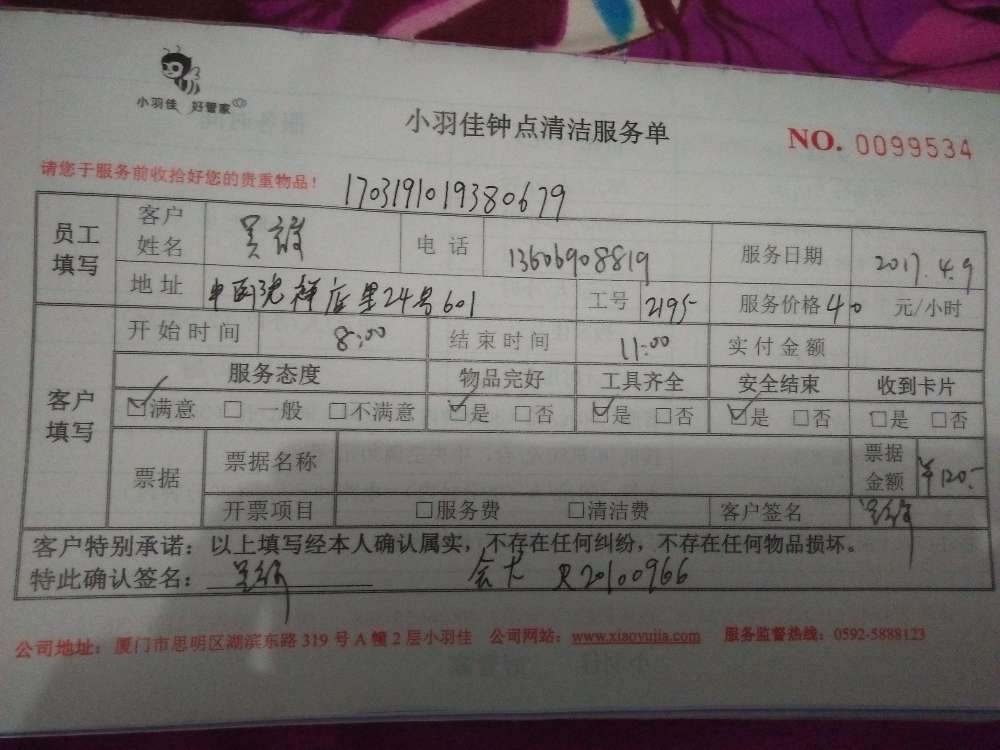 小羽佳 好管家
小羽佳钟点清洁服务单
NO. 0099534
请您于服务前收拾好您的贵重物品!
1703191019380679
员工填写 客户姓名 吴 电话 13606908819 服务日期 2017.4.9
地址 祥店里24号601 工号 2195 服务价格 40 元/小时
客户填写 开始时间 8:00 结束时间 11:00 实付金额
服务态度 物品完好 工具齐全 安全结束 收到卡片
☑满意 □一般 □不满意 ☑是 □否 ☑是 □否 ☑是 □否 □是 □否
票据 票据名称 票据金额 ¥120.-
开票项目 □服务费 □清洁费 客户签名
客户特别承诺:以上填写经本人确认属实,不存在任何纠纷,不存在任何物品损坏。
特此确认签名: R20100966
公司地址:厦门市思明区湖滨东路 319 号 A 幢 2 层小羽佳 公司网站:www.xiaoyujia.com 服务监督热线:0592-5888123